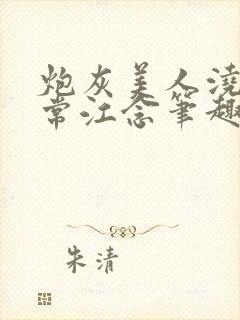 炮灰美人浇
常江念笔趣
朱清